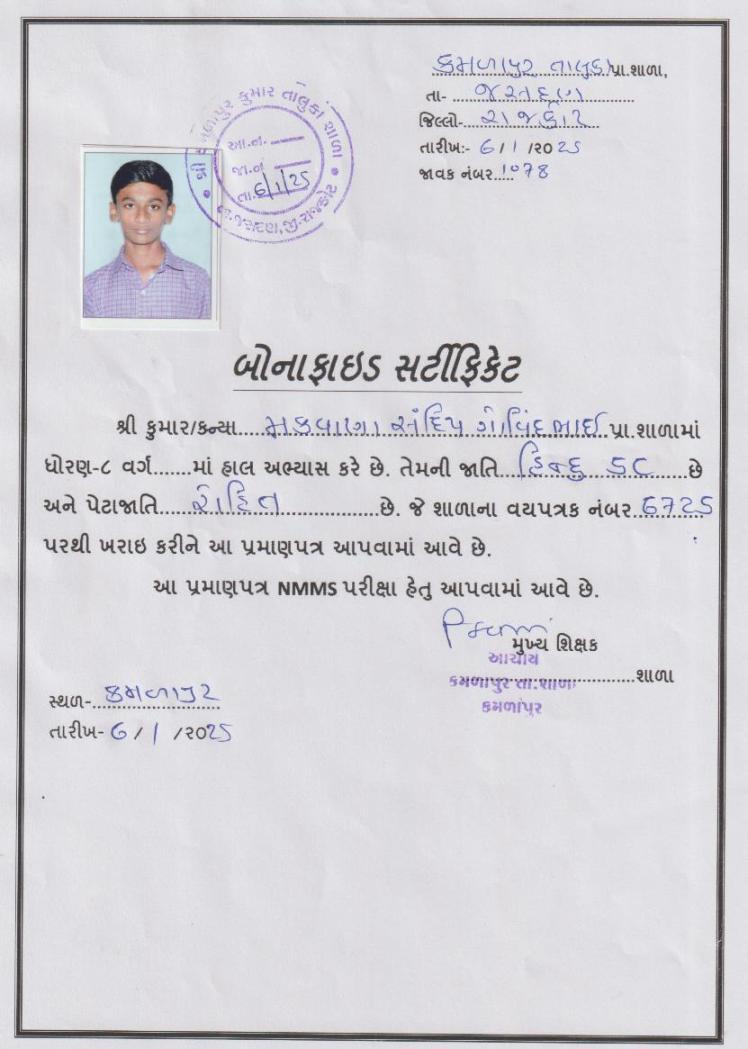 કમળાપુર તાલુકા પ્રા.શાળા,
તા- જસદણ
જિલ્લો- રાજકોટ
તારીખ:- 6/1/૨૦25
જાવક નંબર.....1078
શ્રી કમળાપુર કુમાર તાલુકા શાળા
આ.નં.
જા.નં
તા. 6/1/25
તા.જસદણ,જી.રાજકોટ
બોનાફાઇડ સર્ટીફિકેટ
શ્રી કુમાર/કન્યા....મકવાણા સંદિપ ગોવિંદભાઈ પ્રા.શાળામાં
ધોરણ-૮ વર્ગ.......માં હાલ અભ્યાસ કરે છે. તેમની જાતિ હિન્દુ SC છે
અને પેટાજાતિ રોહિત છે. જે શાળાના વયપત્રક નંબર 6725
પરથી ખરાઇ કરીને આ પ્રમાણપત્ર આપવામાં આવે છે.
આ પ્રમાણપત્ર NMMS પરીક્ષા હેતુ આપવામાં આવે છે.
મુખ્ય શિક્ષક
આચાર્ય
કમળાપુર તા.શાળા શાળા
કમળાપુર
સ્થળ- કમળાપુર
તારીખ- 6/1/૨૦25